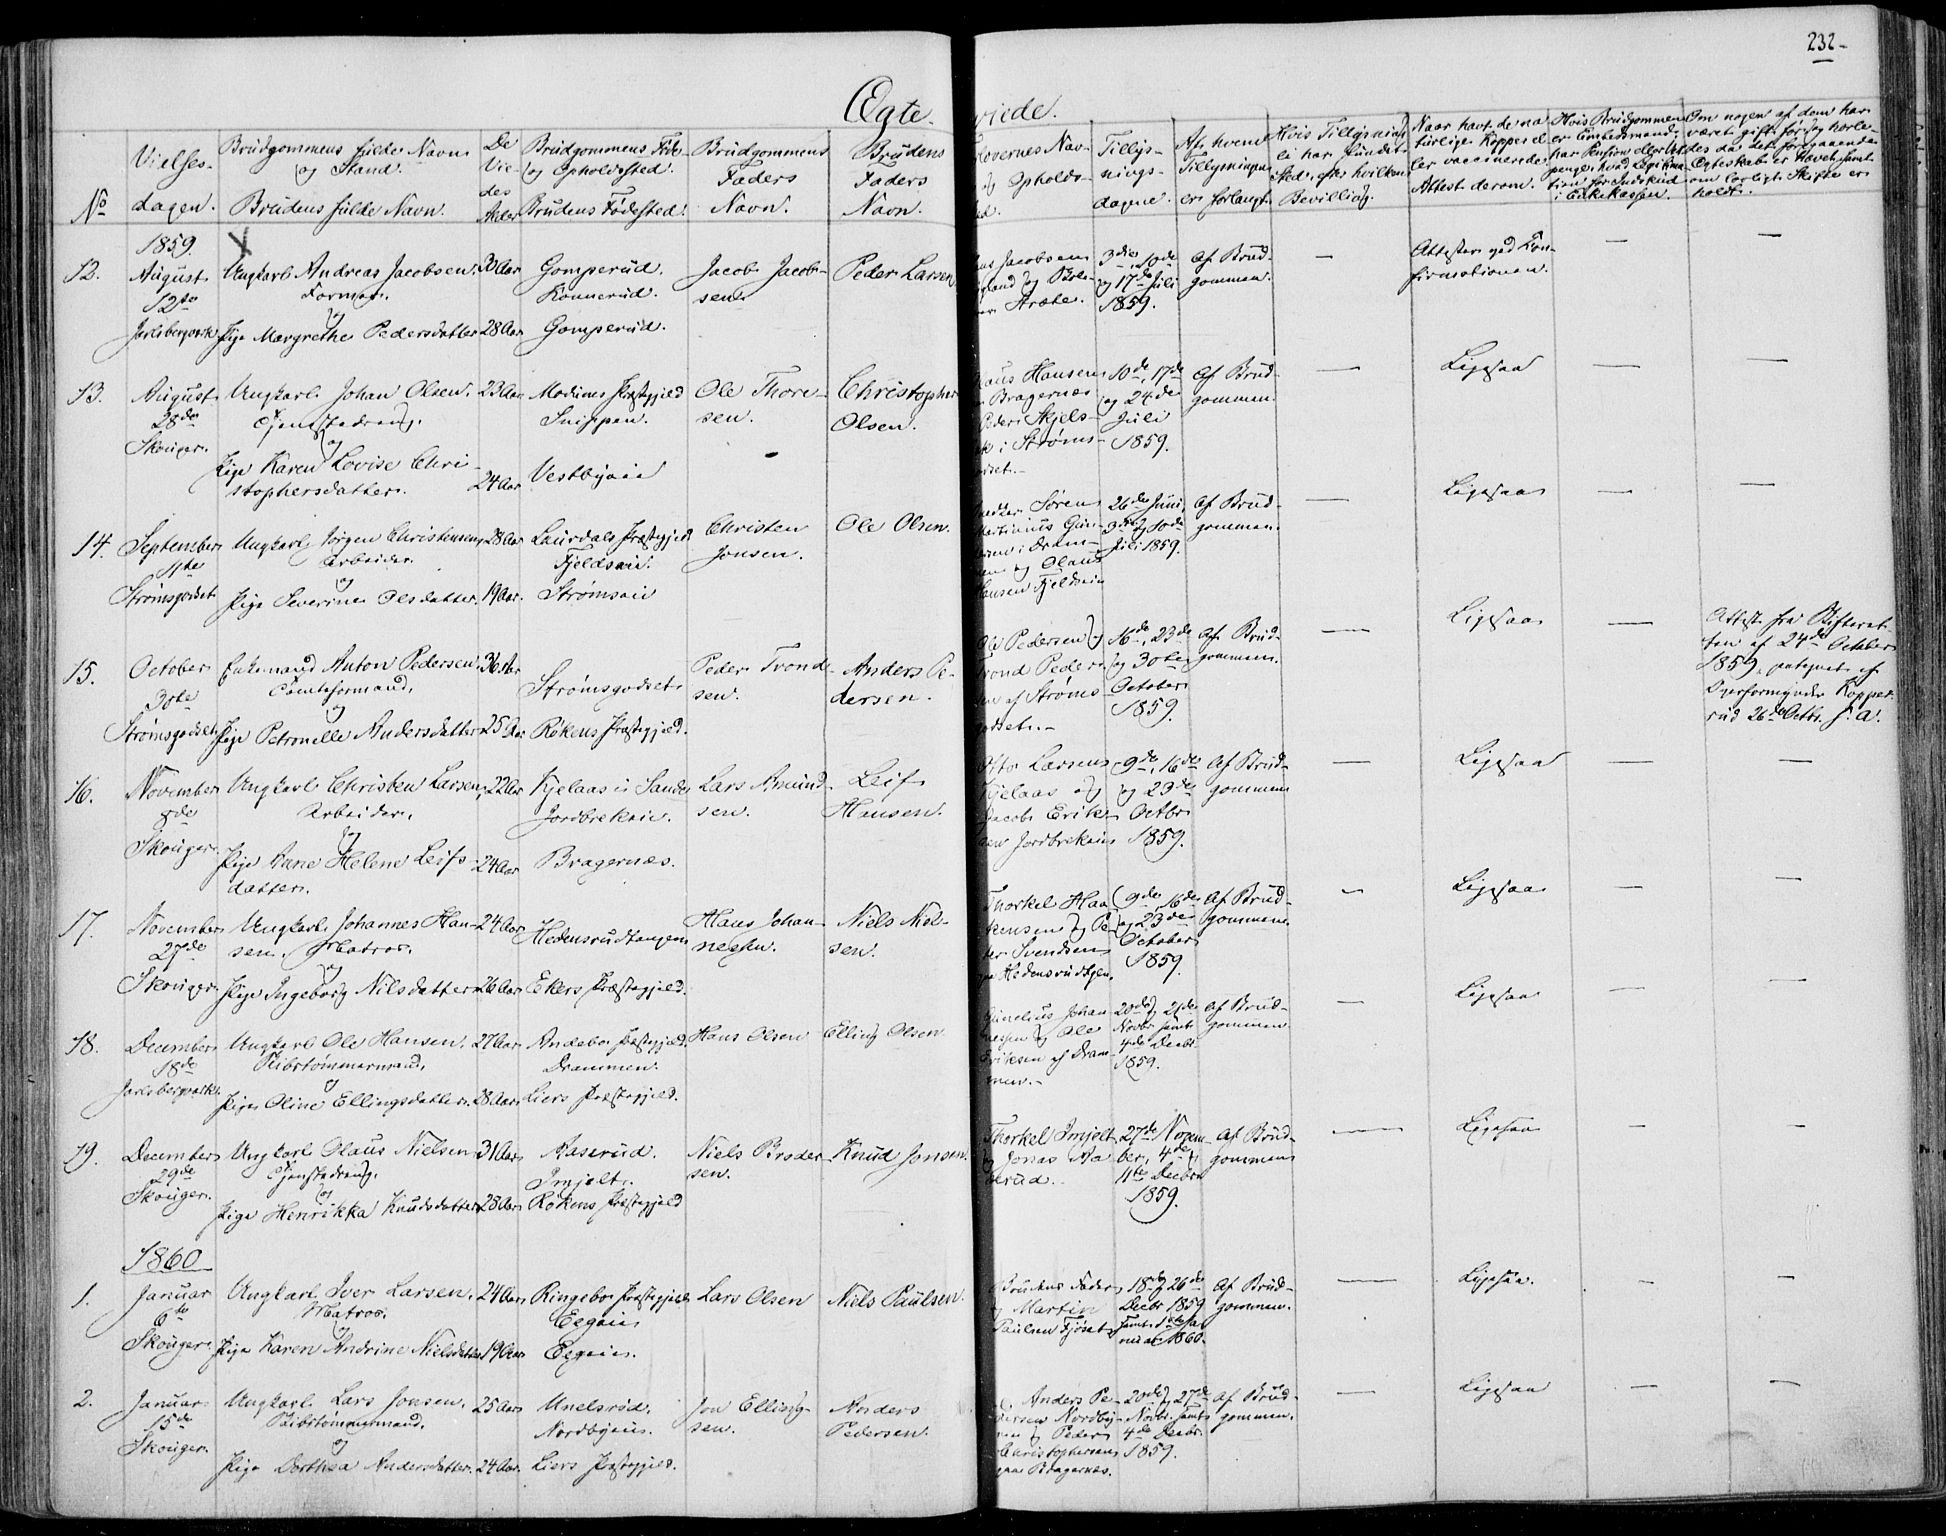 232-
Ægte viede.
No
Vielses-
dagen.
Brudgommens fulde Navn
og Stand.
Brudens fulde Navn.
De
Vie-
des
Alder
Brudgommens Føde-
og Opholdssted.
Brudens Fødested.
Brudgommens
Faders
Navn.
Brudens
Faders
Navn.
lovernes Nav-
og Opholds-
Tillys-
nings-
dagene.
Af hvem
Tillysningen
er forlangt.
Hvis Tillysning
ei har fundet
Sted, efter hvilken
Bevilling.
Naar havt de na-
turlige Kopper el-
ler vaccinerede
Attest derom.
Hvis Brudgommen
er Embedsmand,
i Enkekassen.
Om nogen af dem har
været gift før, og hvorle-
des da det foregaaende
Ægteskab er hævet, samt
om lovligt Skifte er
holdt.
1859.
12.
August
12te
Jarlsbergværk
Ungkarl Andreas Jacobsen.
Former.
og
Pige Margrethe Pedersdatter
30 Aar
28 Aar
Gomperud.
Konnerud.
Gomperud.
Jacob Jacob-
sen.
Peder Larsen
Jacobsen
og 
3die, 10de
og 17de Juli
1859.
Af Brud-
gommen.
—
Attester ved Con-
firmationen.
—
—
13.
August
28de
Skouger.
Ungkarl Johan Olsen.
Tjenestedreng.
og
Pige Karen Lovise Chri-
stophersdatter.
23 Aar
24 Aar
Modums Præstegjeld
Snippen.
Vestbyeie
Ole Thore-
sen.
Christopher
Olsen.
Hansen
Bragernæs
Peder Skjels-
i Strøms-
10de, 17de
og 24de
Juli
1859.
Af Brud-
gommen.
—
Ligesaa
—
—
14.
September
11te
Strømsgodset
Ungkarl Jørgen Christensen,
Arbeider.
og
Pige Severine Olsdatter.
28 Aar
19 Aar.
Laurdals Præstegjeld
Fjeldseie.
Strømseie
Christen
Jonsen.
Ole Olsen.
Søren
Martinius Gun-
i Dram-
og Olaus
Hansen Fjeldseie
26de Juni,
3die og 10de
Juli 1859.
Af Brud-
gommen.
—
Ligesaa
—
—
15.
October
30te
Strømsgodset
Enkemand Anton Pedersen.
Tomteformand.
og
Pige Petronelle Andersdatter
36 Aar
25 Aar
Strømsgodset
Røkens Præstegjeld.
Peder Trond-
sen.
Anders Pe-
dersen.
Ole Pedersen og
Trond Peder-
sen af Strøms-
16de, 23de
og 30te
October
1859.
Af Brud-
gommen.
—
Ligesaa
—
Attest fra Skifteret-
ten af 24de October
1859, paategnet af
Overformynder Kopper-
rud 26de Octbr. s. a.
16.
November
8de
Skouger.
Ungkarl Christen Larsen,
Arbeider.
og
Pige Anne Helene Leifs-
datter.
22 Aar
24 Aar
Kjelaas i Sande
Jordbrekeie.
Bragernæs.
Lars Amund-
sen.
Leif
Hansen.
Otto Larsen
Kjelaas og
Jacob Erik-
sen Jordbrekeie
9de, 16de
og 23de
Octbr
1859.
Af Brud-
gommen
—
Ligesaa
—
—
17.
November
27de
Skouger.
Ungkarl Johannes Han-
sen, Matros.
og
Pige Ingeborg Nilsdatter
24 Aar
26 Aar
Hedensrudtangen
Ekers Præstegjeld.
Hans Johan-
nesen.
Niels Niel-
sen.
Thorkel Haa-
kensen og Pe-
der Svendsen
9de, 16de
og 23de
October
1859.
Af Brud-
gommen.
—
Ligesaa
—
—
18.
December
18de
Jarlsbergværk.
Ungkarl Ole Hansen.
Skibstømmermand,
og
Pige Oline Ellingsdatter.
27 Aar
28 Aar
Andebo Præstegjeld.
Drammen.
Liers Præstegjeld.
Hans Olsen
Elling Olsen
Johan-
nesen og Ole
Eriksen af Dram-
men.-
20de og 27de
Novbr samt
4de Decbr
1859.
Af Brud-
gommen.
—
Ligesaa
—
—
19.
December
29de
Skouger.
Ungkarl Olaus Nielsen
Tjenestedreng.
og
Pige Henrikka Knudsdatter
31 Aar
28 Aar
Aaserud.
Imjelt.
Røkens Præstegjeld
Niels Broder-
sen.
Knud Jonsen.
Thorkel Imjelt
og Jonas Aa-
serud.
27de Novem-
ber, 4de og
11te Decbr
1859.
Af Brud-
gommen
—
Ligesaa
—
—
1860
1.
Januar
6te
Skouger.
Ungkarl Iver Larsen.
Matros.
og
Pige Karen Andrine Nielsdatter
24 Aar
19 Aar
Ringebo Præstegjeld
Eegeie
Eegeie.
Lars Olsen
Niels Paulsen.
Brudens Fader
og Martin
Paulsen Fjøset
18de og 26de
Decbr 1859
samt 1ste Ja-
nuar 1860.
Af Brud-
gommen.
—
Ligesaa.
—
—
2.
Januar
15de
Skouger.
Ungkarl Lars Jonsen.
Skibstømmermand.
og
Pige Dorthea Andersdatter.
25 Aar
24 Aar.
Unelsrød.
Nordbyeie.
Liers Præstegjeld.
Jon Elling-
sen.
Anders
Pedersen.
Anders Pe-
dersen Nordby-
og Peder
Christophersen
Bragernæs.
20de og 27de
Novbr. samt
4de Decbr.
1859.
Af Brud-
gommen.
—
Ligesaa
—
—